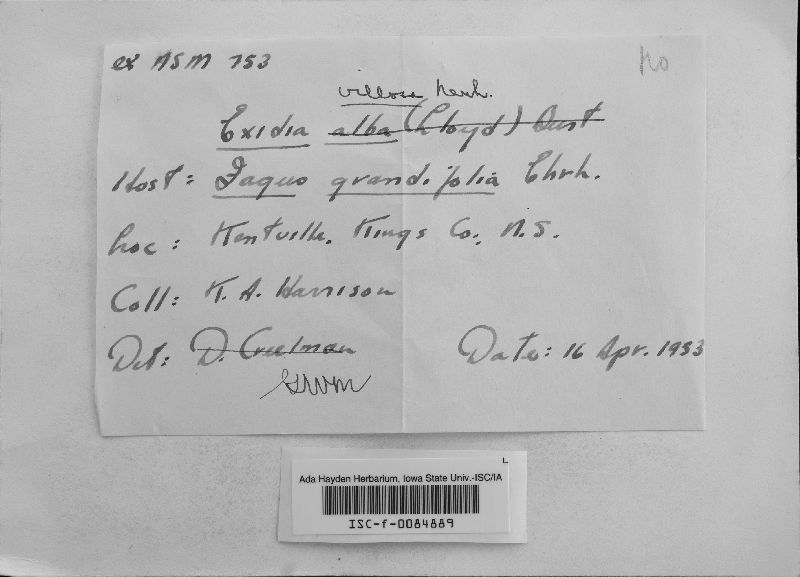 ex NSM 753
No
villosa Neuh.
Exidia alba (Lloyd) Burt
Host: Fagus grandifolia Ehrh.
Loc: Kentville, Kings Co., N.S.
Coll: K. A. Harrison
Det: D. Creelman
Date: 16 Apr. 1953
GWM
L
Ada Hayden Herbarium, Iowa State Univ.-ISC/IA
ISC-f-0084889